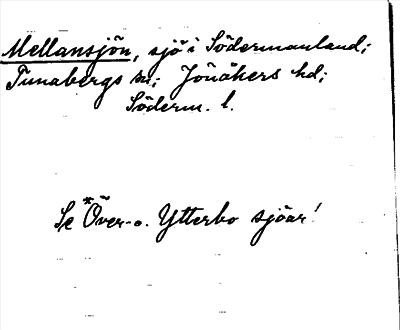 Mellansjön, sjö i Södermanland;
Tunabergs sn; Jönåkers hd;
Söderm. l.
Se *Över- o. Ytterbo sjöar!